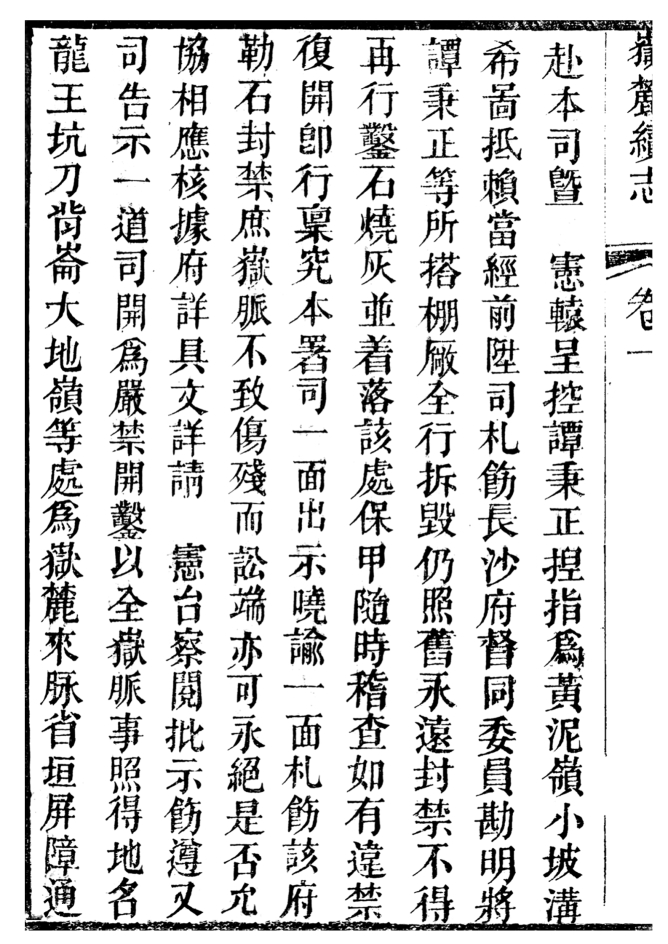 嶽麓續志　卷一
赴本司曁　憲轅呈控譚秉正捏指爲黃泥嶺小坡溝
希啚抵賴當經前陞司札飭長沙府督同委員勘明將
譚秉正等所搭棚廠全行拆毀仍照舊永遠封禁不得
再行鑿石燒灰並着落該處保甲隨時稽查如有違禁
復開卽行稟究本署司一面出示曉諭一面札飭該府
勒石封禁庶嶽脈不致傷殘而訟端亦可永絕是否允
協相應核據府詳具文詳請　憲台察閱批示飭遵又
司告示一道司開爲嚴禁開鑿以全嶽脈事照得地名
龍王坑刀背崙大地嶺等處爲嶽麓來脉省垣屏障通